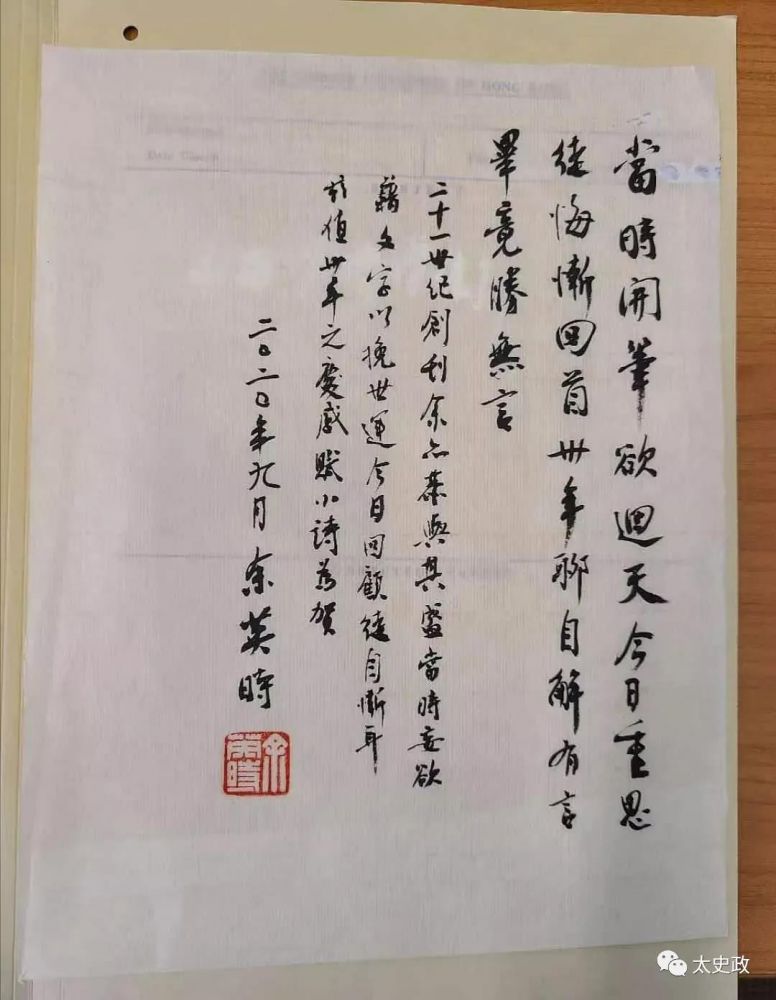 當時開筆欲迴天今日重思
徒悔慚回首卅年聊自解有言
畢竟勝無言
二十一世紀創刊余亦恭與其盛當時妄欲
藉文字以挽世運今日回顧徒自慚耳
茲值卅年之慶感賦小詩為賀
二〇二〇年九月 余英時
余英時
太史政